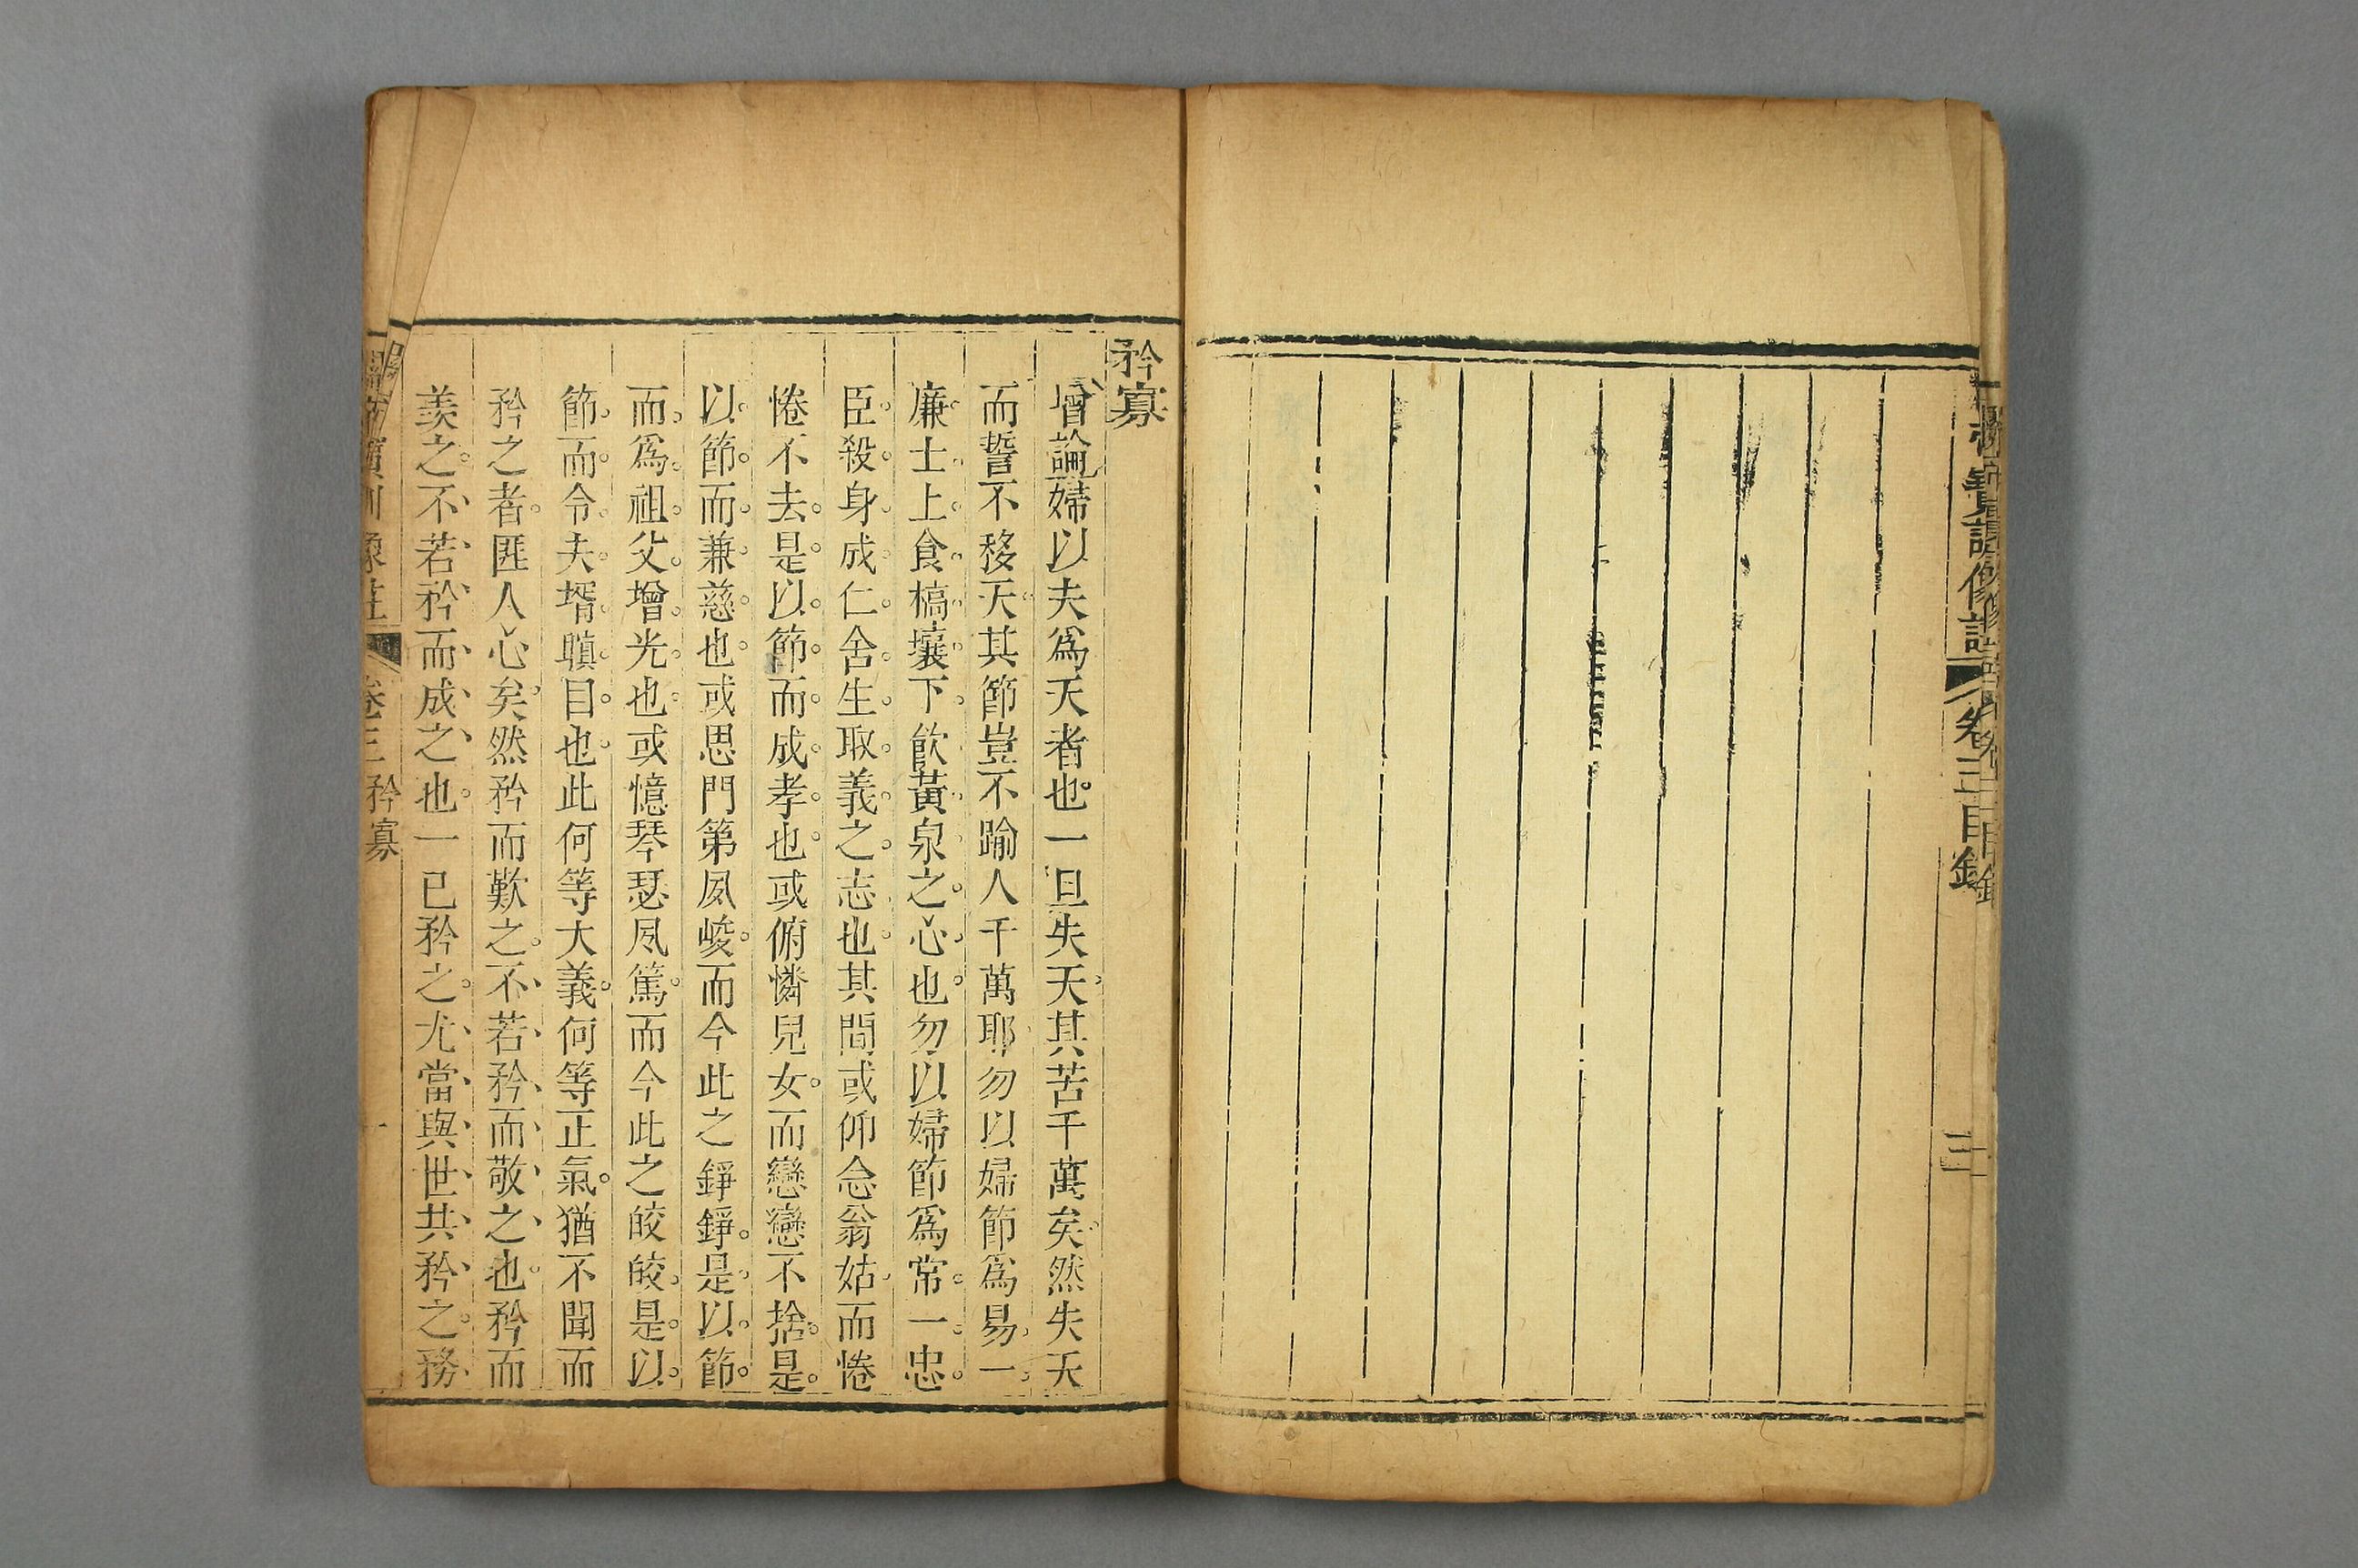 寶訓像註 卷三目錄
三
矜寡
增論婦以夫爲天者也一旦失天其苦千萬矣然失天
而誓不移天其節豈不踰人千萬耶勿以婦節爲易一
廉士上食槁壤下飲黃泉之心也勿以婦節爲常一忠
臣殺身成仁舍生取義之志也其間或仰念翁姑而惓
惓不去是以節而成孝也或俯憐兒女而戀戀不捨是
以節而兼慈也或思門第夙峻而今此之錚錚是以節
而爲祖父增光也或憶琴瑟夙篤而今此之皎皎是以
節而令夫壻瞋目也此何等大義何等正氣猶不聞而
矜之者匪人心矣然矜而歎之不若矜而敬之也矜而
羨之不若矜而成之也一已矜之尤當與世共矜之務
寶訓像註 卷三 矜寡 一